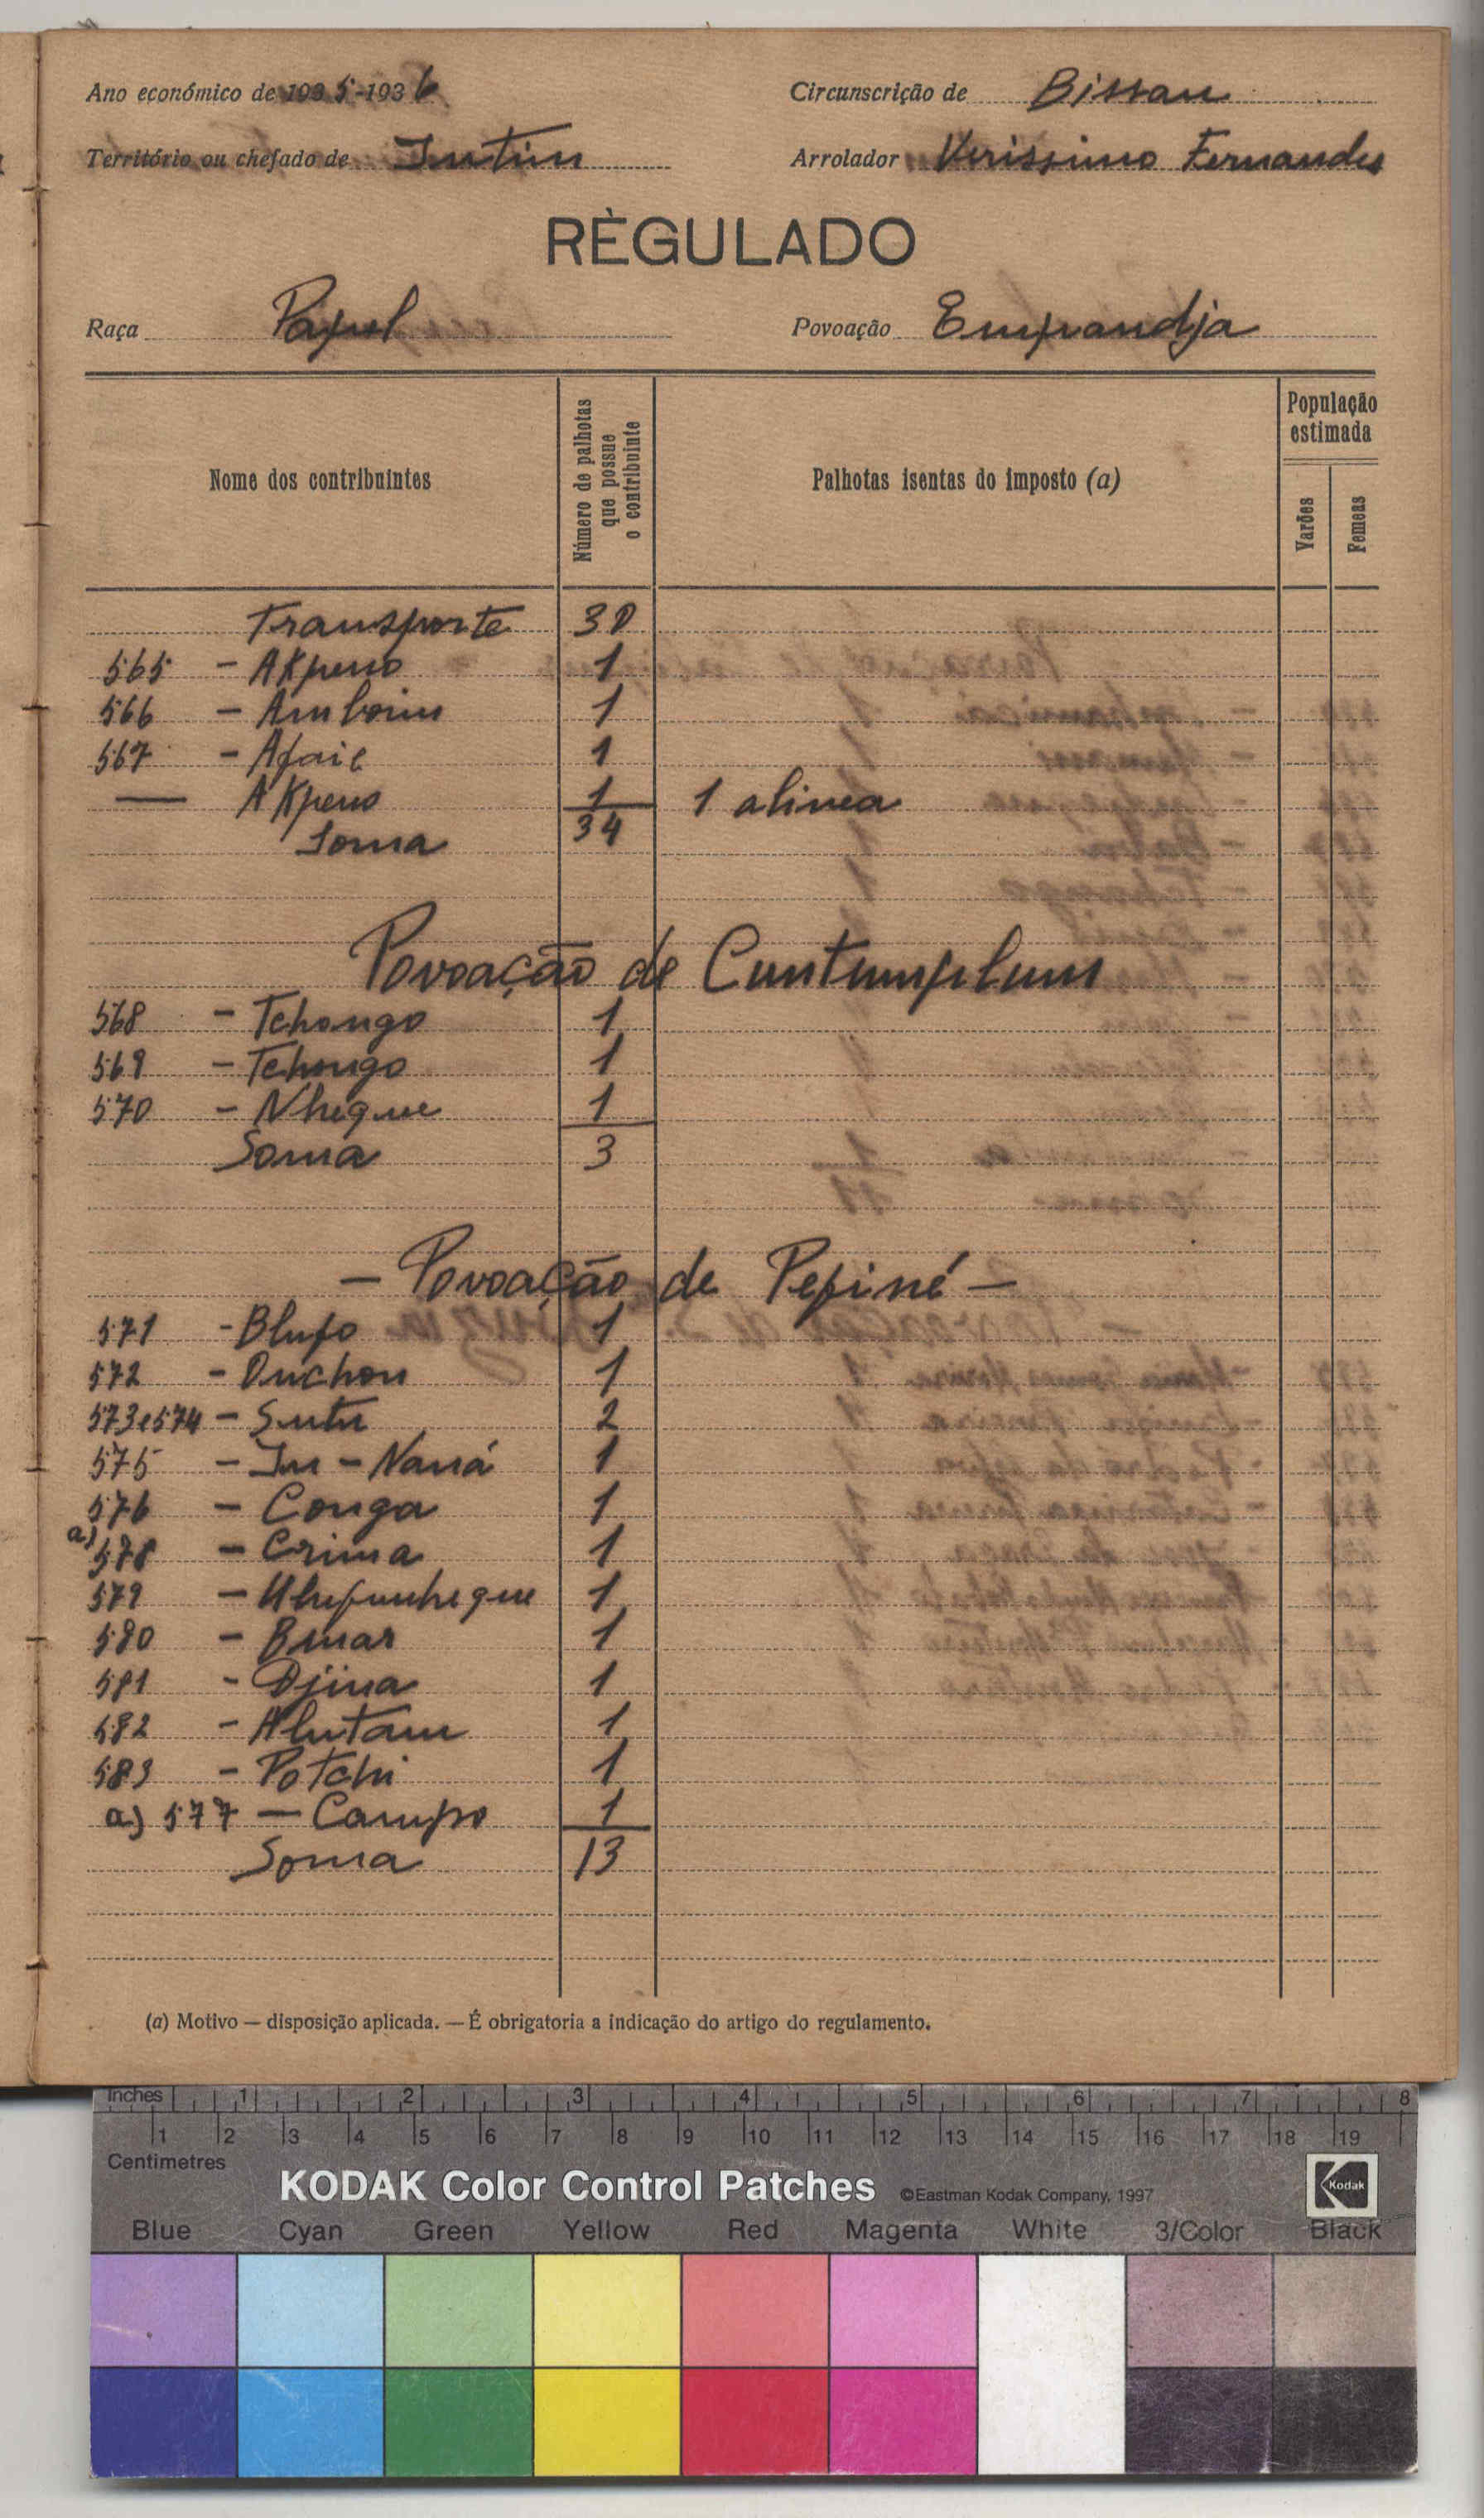 Ano económico de 1935-1936
Circunscrição de Bissau
Território ou chefado de Intim
Arrolador Verissimo Fernandes
RÈGULADO
Raça Papel
Povoação Empandja
Nome dos contribuintes
Número de palhotas que possue o contribuinte
Palhotas isentas do imposto (a)
População estimada
Varões
Femeas
Transporte 30
565 - AKpeno 1
566 - Amboim 1
567 - Afaie 1
— AKpeno 1 1 alinea
Soma 34
Povoação de Cuntumplum
568 - Tchongo 1
569 - Tchongo 1
570 - Nhegue 1
Soma 3
— Povoação de Pefiné —
571 - Blufo 1
572 - Ouchon 1
573e574 - Sutu 2
575 - In - Naná 1
576 - Conga 1
a) 578 - Crima 1
579 - 1
580 - Bmar 1
581 - Djina 1
582 - Alutam 1
583 - Potchi 1
a) 577 — Campo 1
Soma 13
(a) Motivo — disposição aplicada. — É obrigatoria a indicação do artigo do regulamento.
Inches 1 2 3 4 5 6 7 8
1 2 3 4 5 6 7 8 9 10 11 12 13 14 15 16 17 18 19
Centimetres
KODAK Color Control Patches ©Eastman Kodak Company, 1997 Kodak
Blue Cyan Green Yellow Red Magenta White 3/Color Black